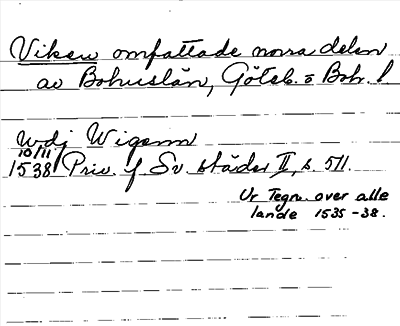 Viken omfattade norra delen
av Bohuslän, Göteb. o Boh. l
udj Wigenn
10/11
1538 Priv. f Sv städer II, s. 511.
Ur Tegn. over alle
lande 1535-38.